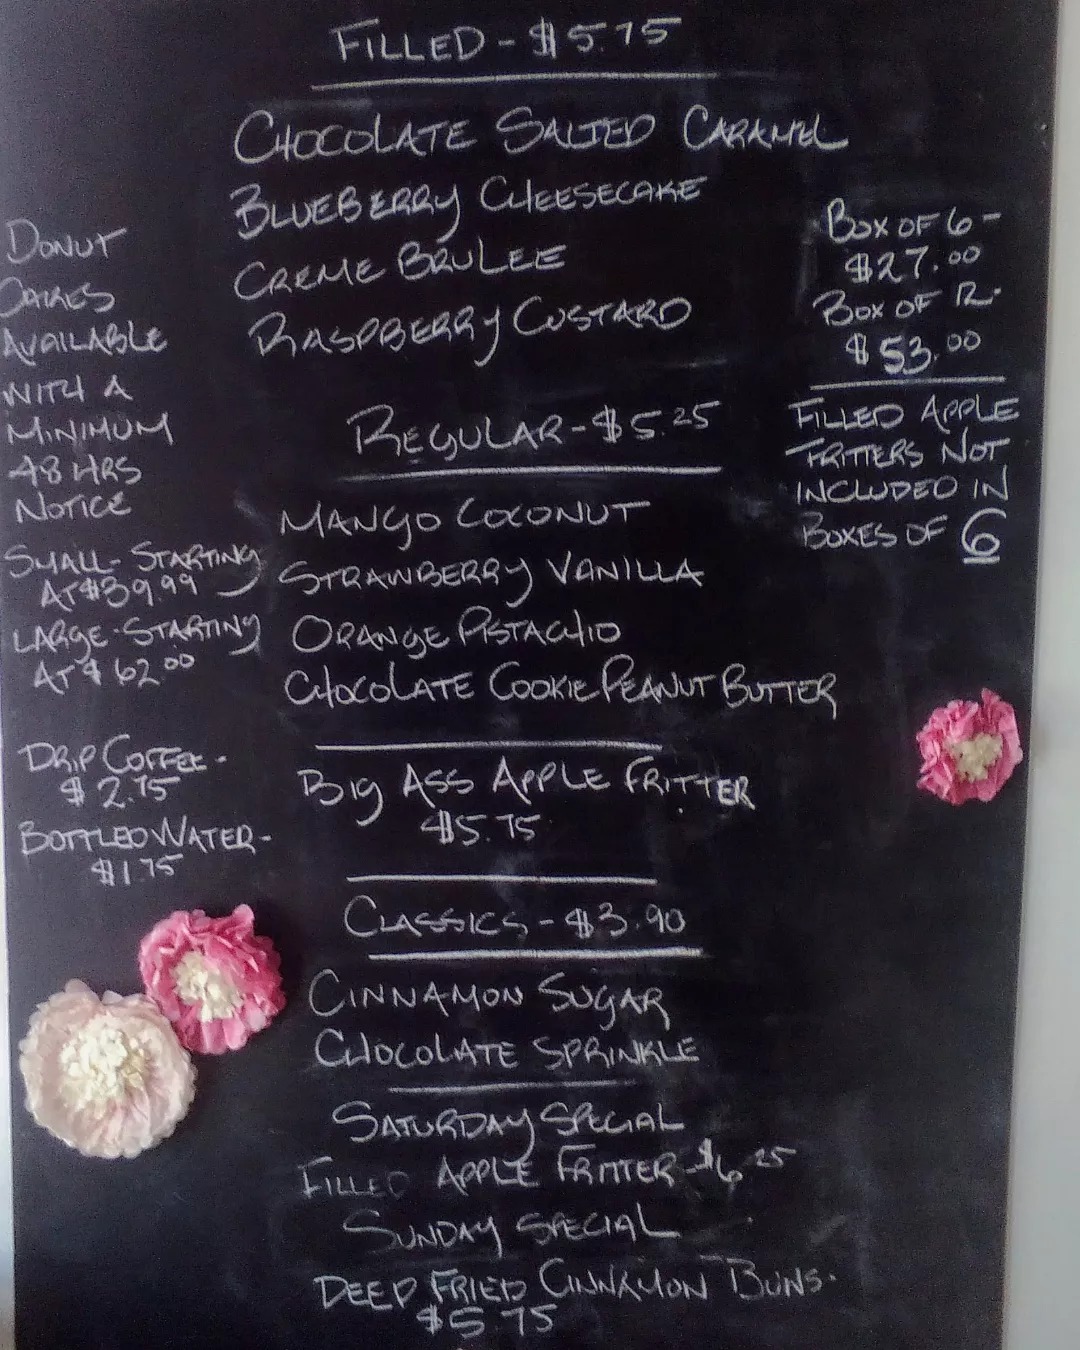 FILLED - $5.75
CHOCOLATE SALTED CARAMEL
BLUEBERRY CHEESECAKE
CREME BRULEE
RASPBERRY CUSTARD
REGULAR - $5.25
MANGO COCONUT
STRAWBERRY VANILLA
ORANGE PISTACHIO
CHOCOLATE COOKIE PEANUT BUTTER
BIG ASS APPLE FRITTER
$5.75
CLASSICS - $3.90
CINNAMON SUGAR
CHOCOLATE SPRINKLE
SATURDAY SPECIAL
FILLED APPLE FRITTER $6.25
SUNDAY SPECIAL
DEEP FRIED CINNAMON BUNS.
$5.75
DONUT
CAKES
AVAILABLE
WITH A
MINIMUM
48 HRS
NOTICE
SMALL - STARTING
AT $39.99
LARGE - STARTING
AT $62.00
DRIP COFFEE -
$2.75
BOTTLED WATER -
$1.75
BOX OF 6 -
$27.00
BOX OF 12 -
$53.00
FILLED APPLE
FRITTERS NOT
INCLUDED IN
BOXES OF 6